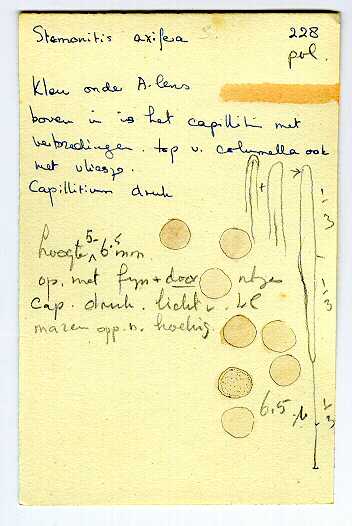 Stemonitis axifera
228
pol.
Kleur onder A-lens
boven in is het capillitium met
verbredingen. top v. columella ook
met vliesje.
Capillitium druk
hoogte 5-6.5 mm.
op. met fyn + door netjes
Cap. druk. licht
mazen opp. n. hoekig.
1/3
1/3
1/3
6.5 μ